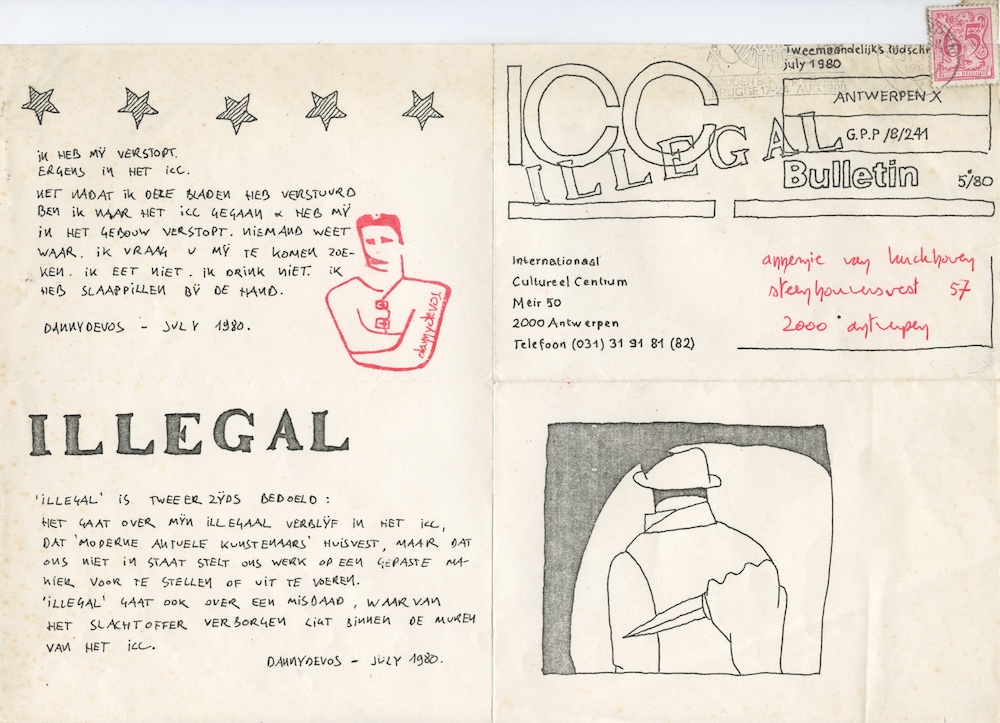 IK HEB MŸ VERSTOPT.
ERGENS IN HET ICC.
NET NADAT IK DEZE BLADEN HEB VERSTUURD
BEN IK NAAR HET ICC GEGAAN & HEB MŸ
IN HET GEBOUW VERSTOPT. NIEMAND WEET
WAAR. IK VRAAG U MŸ TE KOMEN ZOE-
KEN. IK EET NIET. IK DRINK NIET. IK
HEB SLAAPPILLEN BŸ DE HAND.
DANNYDEVOS - JULY 1980.
dannydevos
ILLEGAL
'ILLEGAL' IS TWEEERZŸDS BEDOELD:
HET GAAT OVER MŸN ILLEGAAL VERBLŸF IN HET ICC,
DAT 'MODERNE AKTUELE KUNSTENAARS' HUISVEST, MAAR DAT
ONS NIET IN STAAT STELT ONS WERK OP EEN GEPASTE MA-
NIER VOOR TE STELLEN OF UIT TE VOEREN.
'ILLEGAL' GAAT OOK OVER EEN MISDAAD, WAAR VAN
HET SLACHTOFFER VERBORGEN LIGT BINNEN DE MUREN
VAN HET ICC.
DANNYDEVOS - JULY 1980.
Tweemaandelijks tijdschr
july 1980
ICC
ANTWERPEN X
G.P.P /8/241
ILLEGAL
Bulletin 5/80
Internationaal
Cultureel Centrum
Meir 50
2000 Antwerpen
Telefoon (031) 31 91 81 (82)
annemie van kerckhoven
steenhouwersvest 57
2000 antwerpen
5